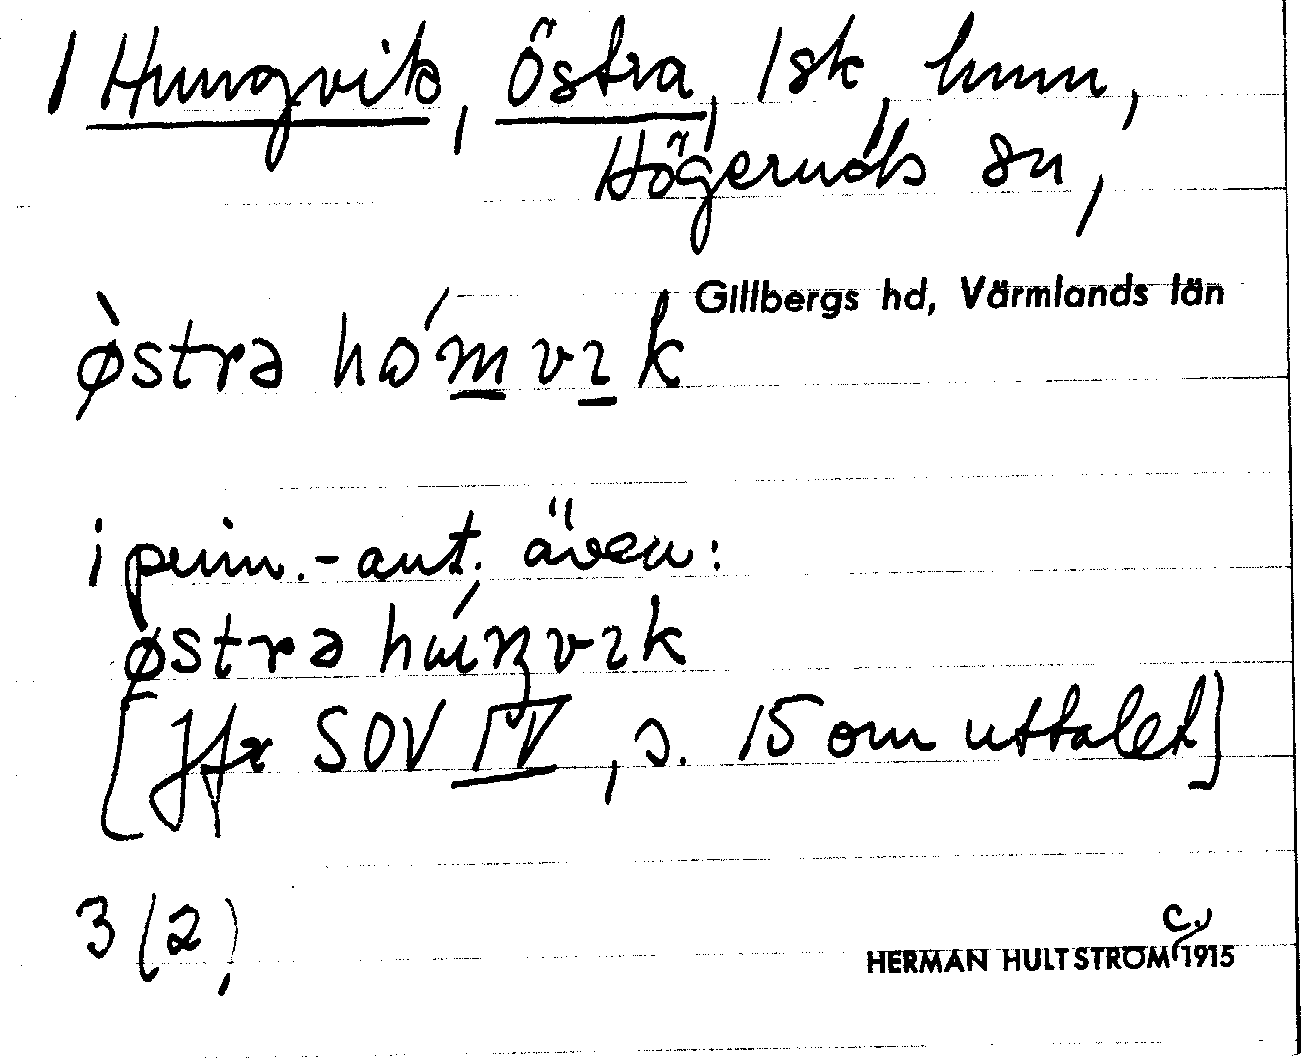 1 Hungvik, Östra, 1sk, hmn,
Högeruds sn,
Gillbergs hd, Värmlands län
ø̀stra hómvık
i prim.-ant. även:
østra húŋvık
[Jfr SOV IV, s. 15 om uttalet]
3 (2)
c.
HERMAN HULTSTRÖM 1915